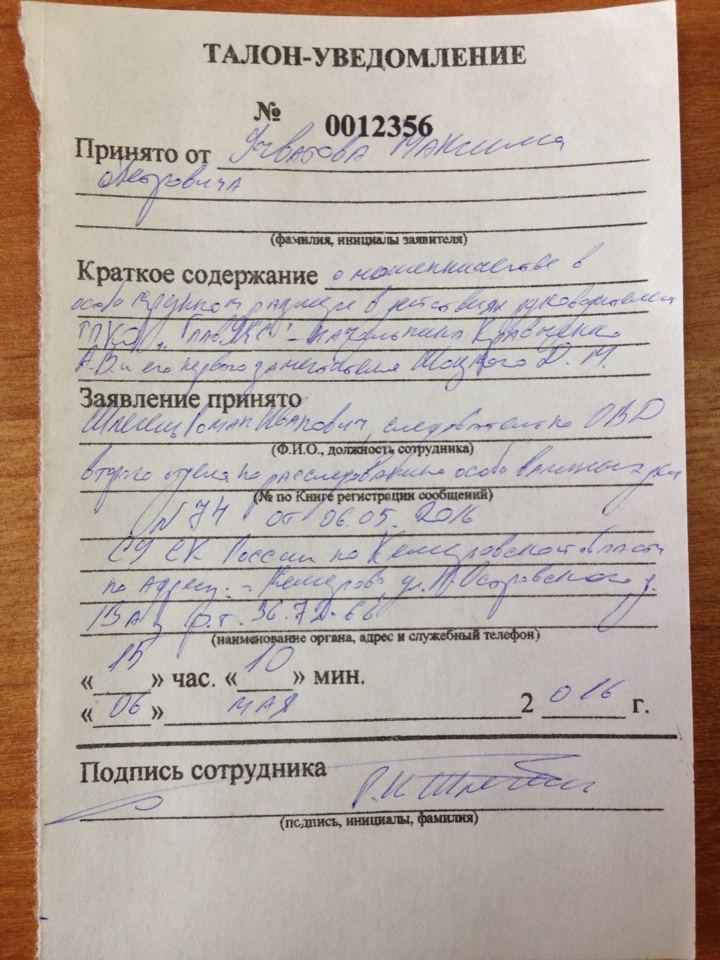 ТАЛОН-УВЕДОМЛЕНИЕ
№ 0012356
Принято от Учватова Максима
Петровича
(фамилия, инициалы заявителя)
Краткое содержание о мошенничестве в
особо крупном размере в действиях руководителей
" - начальника Кравченко
А.В. и его первого заместителя Шоцкого Д.М.
Заявление принято
Роман Иванович, следователь по ОВД
(Ф.И.О., должность сотрудника)
второго отдела по расследованию особо важных дел
(№ по Книге регистрации сообщений)
N 74 от 06.05.2016
СУ СК России по Кемеровской области
по адресу: г. Кемерово, ул. Н. Островского д.
р.т. 36-72-66
(наименование органа, адрес и служебный телефон)
« 15 » час. « 10 » мин.
« 06 » мая 2 016 г.
Подпись сотрудника Р.И.
(подпись, инициалы, фамилия)